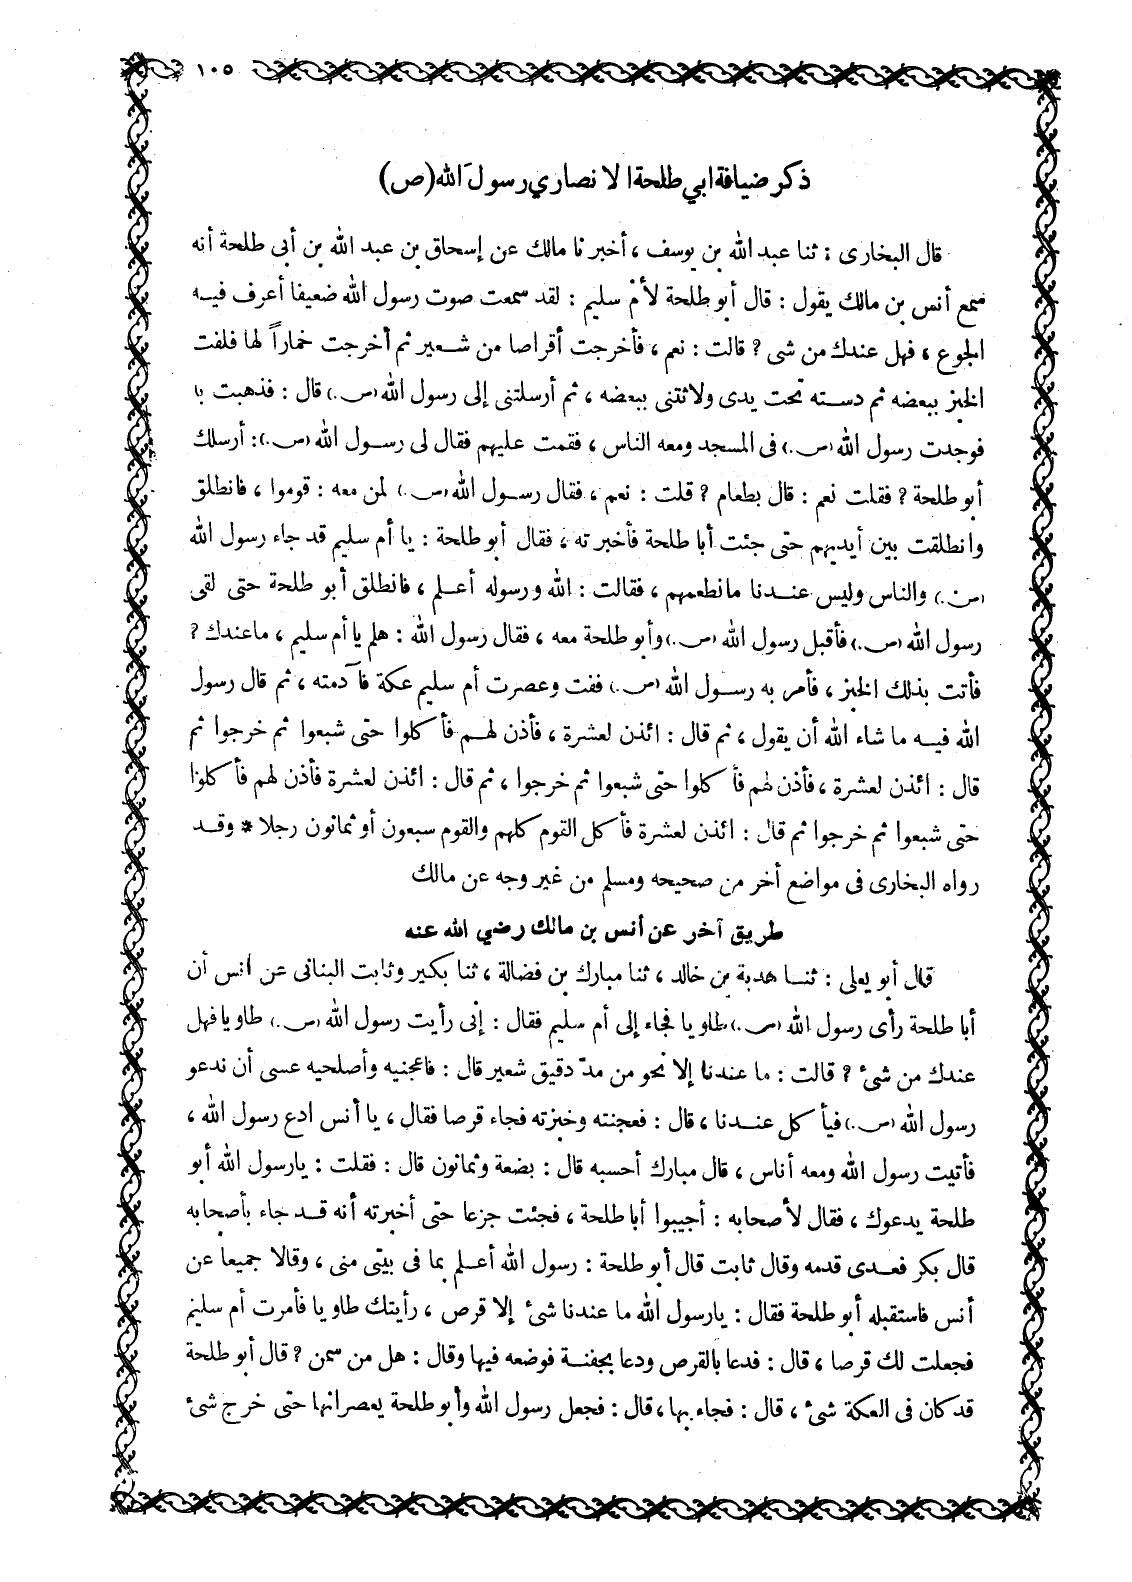 ١٠٥
ذكر ضيافة ابي طلحة الانصاري رسول الله (ص)
قال البخارى : ثنا عبد الله بن يوسف ، أخبرنا مالك عن إسحاق بن عبد الله بن أبى طلحة أنه
سمع أنس بن مالك يقول : قال أبو طلحة لأم سليم : لقد سمعت صوت رسول الله ضعيفا أعرف فيه
الجوع ، فهل عندك من شى ? قالت : نعم ، فأخرجت أقراصا من شعير ثم أخرجت خماراً لها فلفت
الخبز ببعضه ثم دسته تحت يدى ولاثتنى ببعضه ، ثم أرسلتنى إلى رسول الله (ص.) قال : فذهبت با
فوجدت رسول الله (ص.) فى المسجد ومعه الناس ، فقمت عليهم فقال لى رسول الله (ص.): أرسلك
أبو طلحة ? فقلت نعم : قال بطعام ? قلت : نعم ، فقال رسول الله (ص.) لمن معه : قوموا ، فانطلق
وانطلقت بين أيديهم حتى جئت أبا طلحة فأخبرته ، فقال أبو طلحة : يا أم سليم قد جاء رسول الله
(ص.) والناس وليس عندنا مانطعمهم ، فقالت : الله ورسوله أعلم ، فانطلق أبو طلحة حتى لقى
رسول الله (ص.) فأقبل رسول الله (ص.) وأبو طلحة معه ، فقال رسول الله : هلم يا أم سليم ، ماعندك ?
فأتت بذلك الخبز ، فأمر به رسول الله (ص.) ففت وعصرت أم سليم عكة فآدمته ، ثم قال رسول
الله فيه ما شاء الله أن يقول ، ثم قال : ائذن لعشرة ، فأذن لهم فأكلوا حتى شبعوا ثم خرجوا ثم
قال : ائذن لعشرة ، فأذن لهم فأكلوا حتى شبعوا ثم خرجوا ، ثم قال : ائذن لعشرة فأذن لهم فأكلوا
حتى شبعوا ثم خرجوا ثم قال : ائذن لعشرة فأكل القوم كلهم والقوم سبعون أو ثمانون رجلا * وقد
رواه البخارى فى مواضع أخر من صحيحه ومسلم من غير وجه عن مالك
طريق آخر عن أنس بن مالك رضي الله عنه
قال أبو يعلى : ثنا هدبة بن خالد ، ثنا مبارك بن فضالة ، ثنا بكير وثابت البنانى عن أنس أن
أبا طلحة رأى رسول الله (ص.) طاويا فجاء إلى أم سليم فقال : إنى رأيت رسول الله (ص.) طاويا فهل
عندك من شئ ? قالت : ما عندنا إلا نحو من مدّ دقيق شعير قال : فاعجنيه وأصلحيه عسى أن ندعو
رسول الله (ص.) فيأكل عندنا ، قال : فعجنته وخبزته فجاء قرصا فقال ، يا أنس ادع رسول الله ،
فأتيت رسول الله ومعه أناس ، قال مبارك أحسبه قال : بضعة وثمانون قال : فقلت : يارسول الله أبو
طلحة يدعوك ، فقال لأصحابه : أجيبوا أبا طلحة ، فجئت جزعا حتى أخبرته أنه قد جاء بأصحابه
قال بكر فعدى قدمه وقال ثابت قال أبو طلحة : رسول الله أعلم بما فى بيتى منى ، وقالا جميعا عن
أنس فاستقبله أبو طلحة فقال : يارسول الله ما عندنا شئ إلا قرص ، رأيتك طاويا فأمرت أم سليم
فجعلت لك قرصا ، قال : فدعا بالقرص ودعا بجفنة فوضعه فيها وقال : هل من سمن ? قال أبو طلحة
قد كان فى العكة شئ ، قال : فجاء بها ، قال : فجعل رسول الله وأبو طلحة يعصرانها حتى خرج شئ